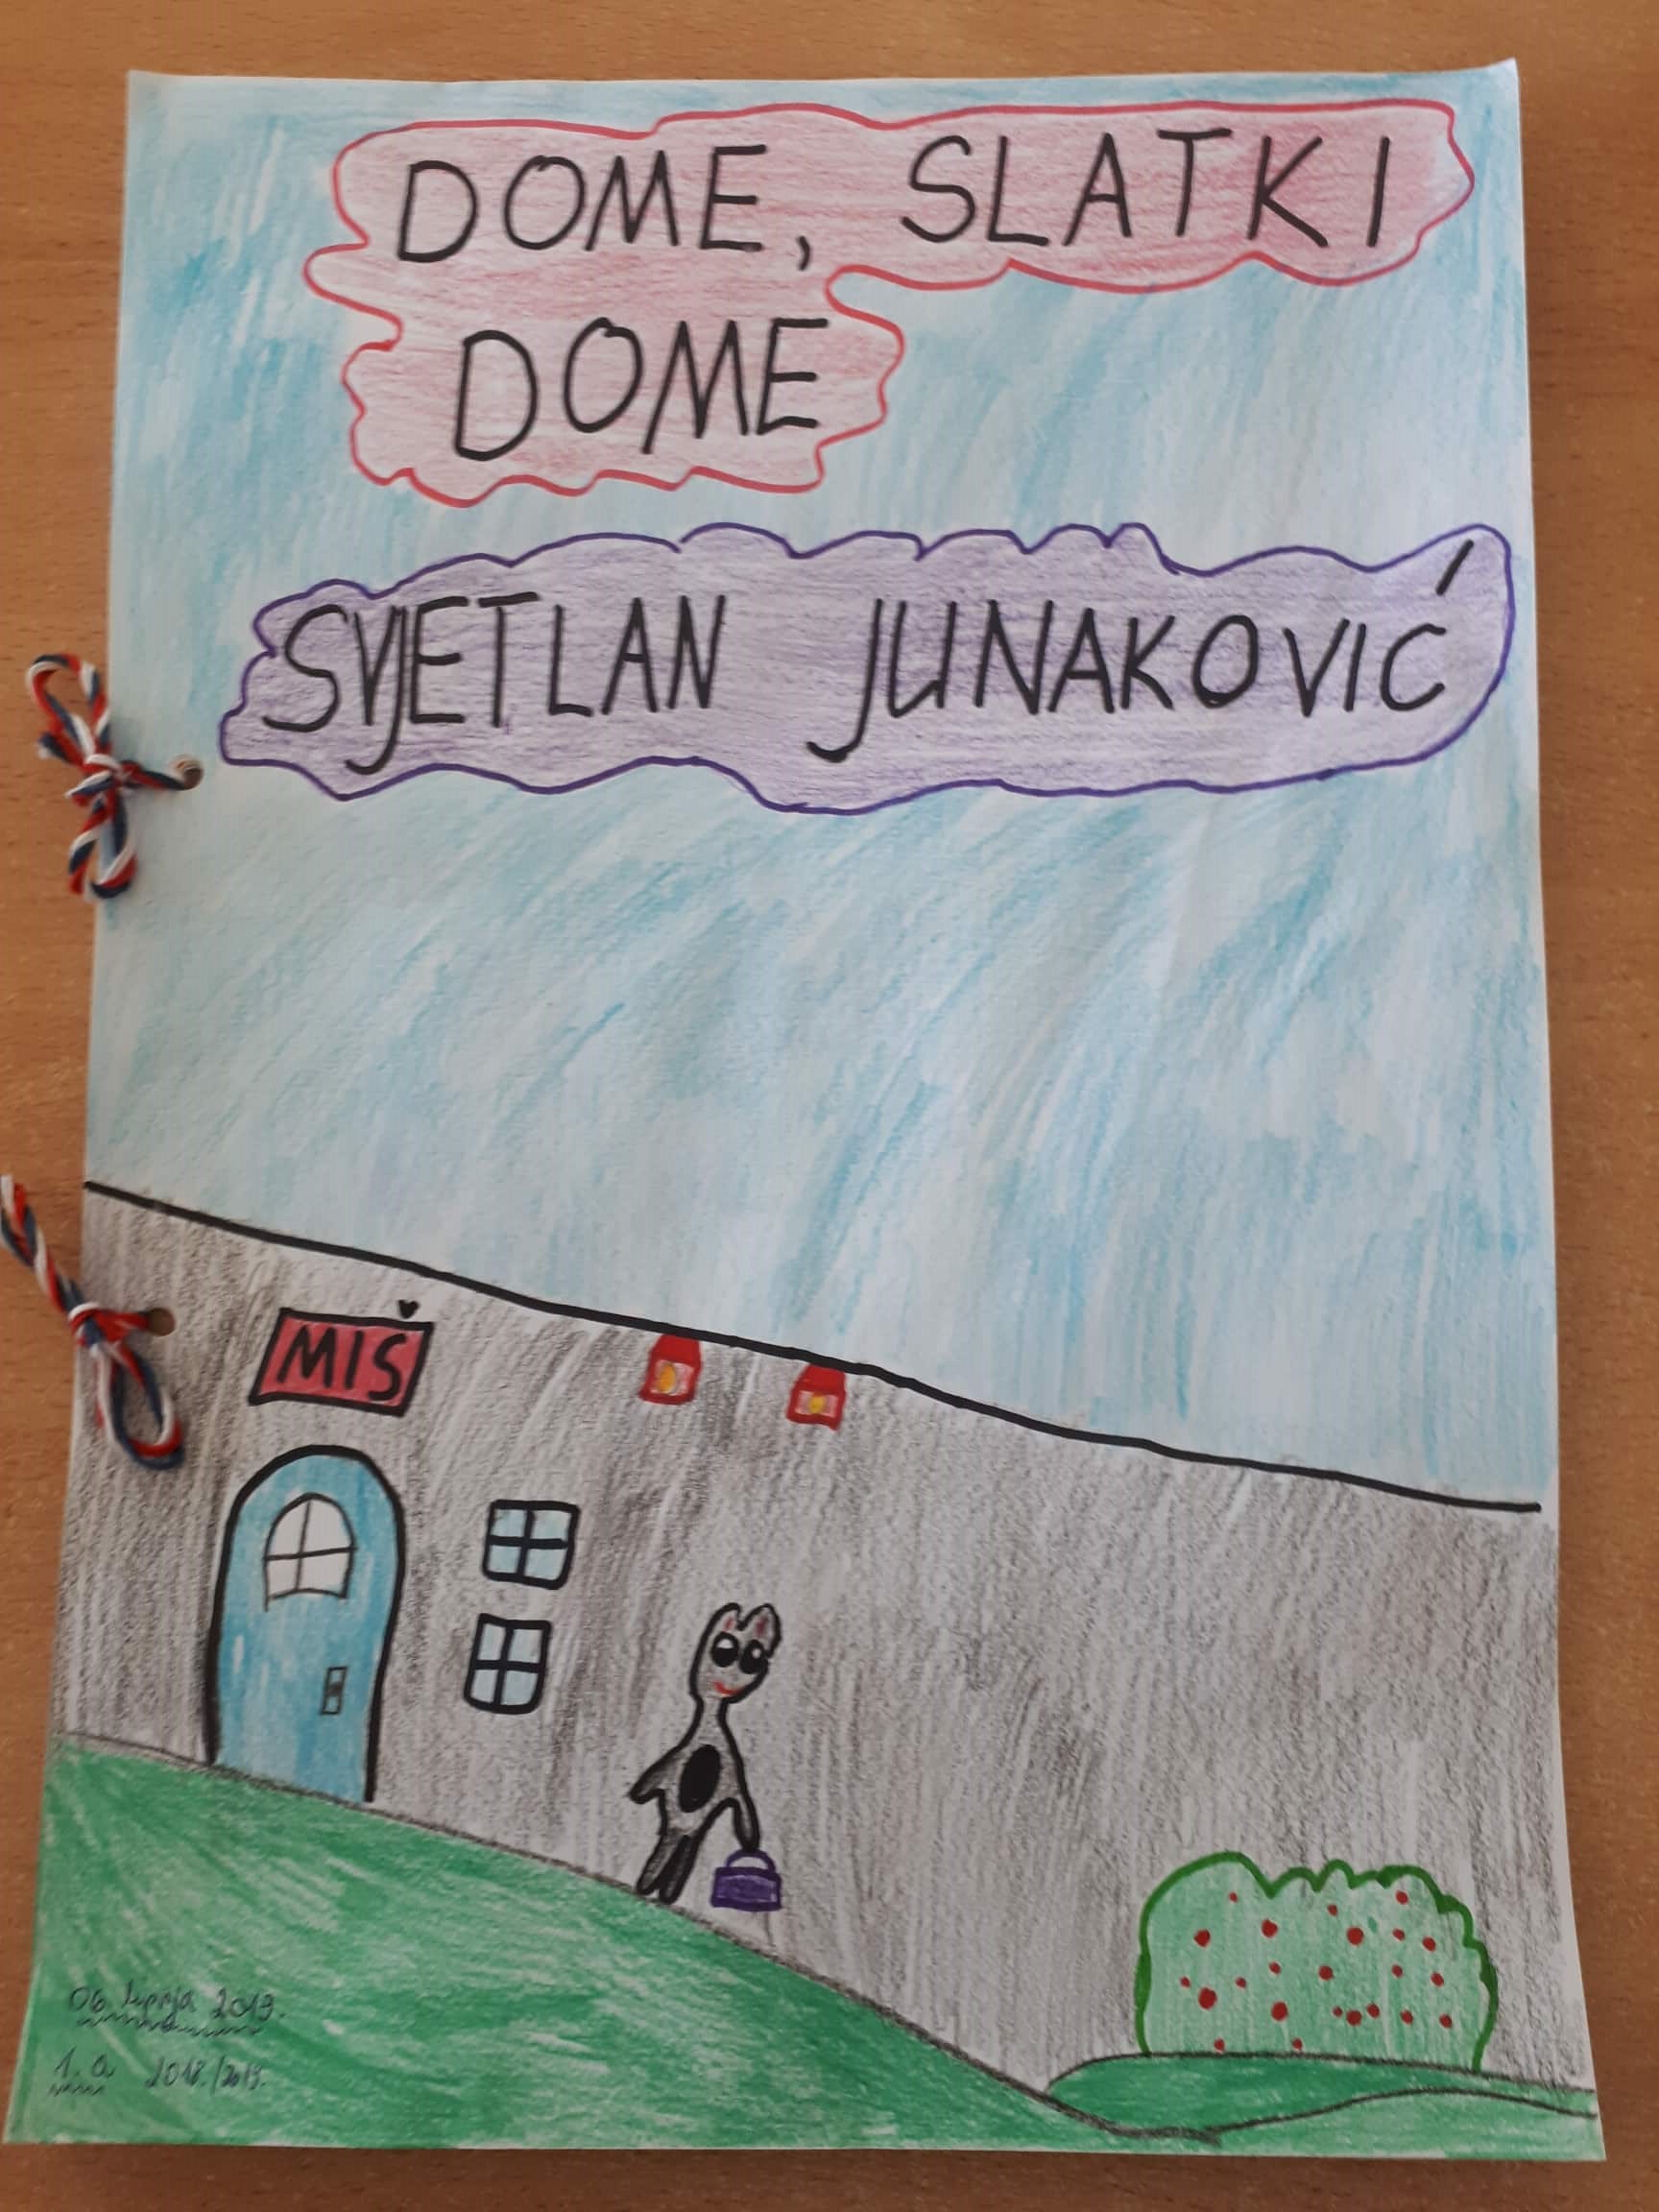 DOME, SLATKI
DOME
SVJETLAN JUNAKOVIĆ
MIŠ
06. lipnja 2019.
1. a 2018./2019.